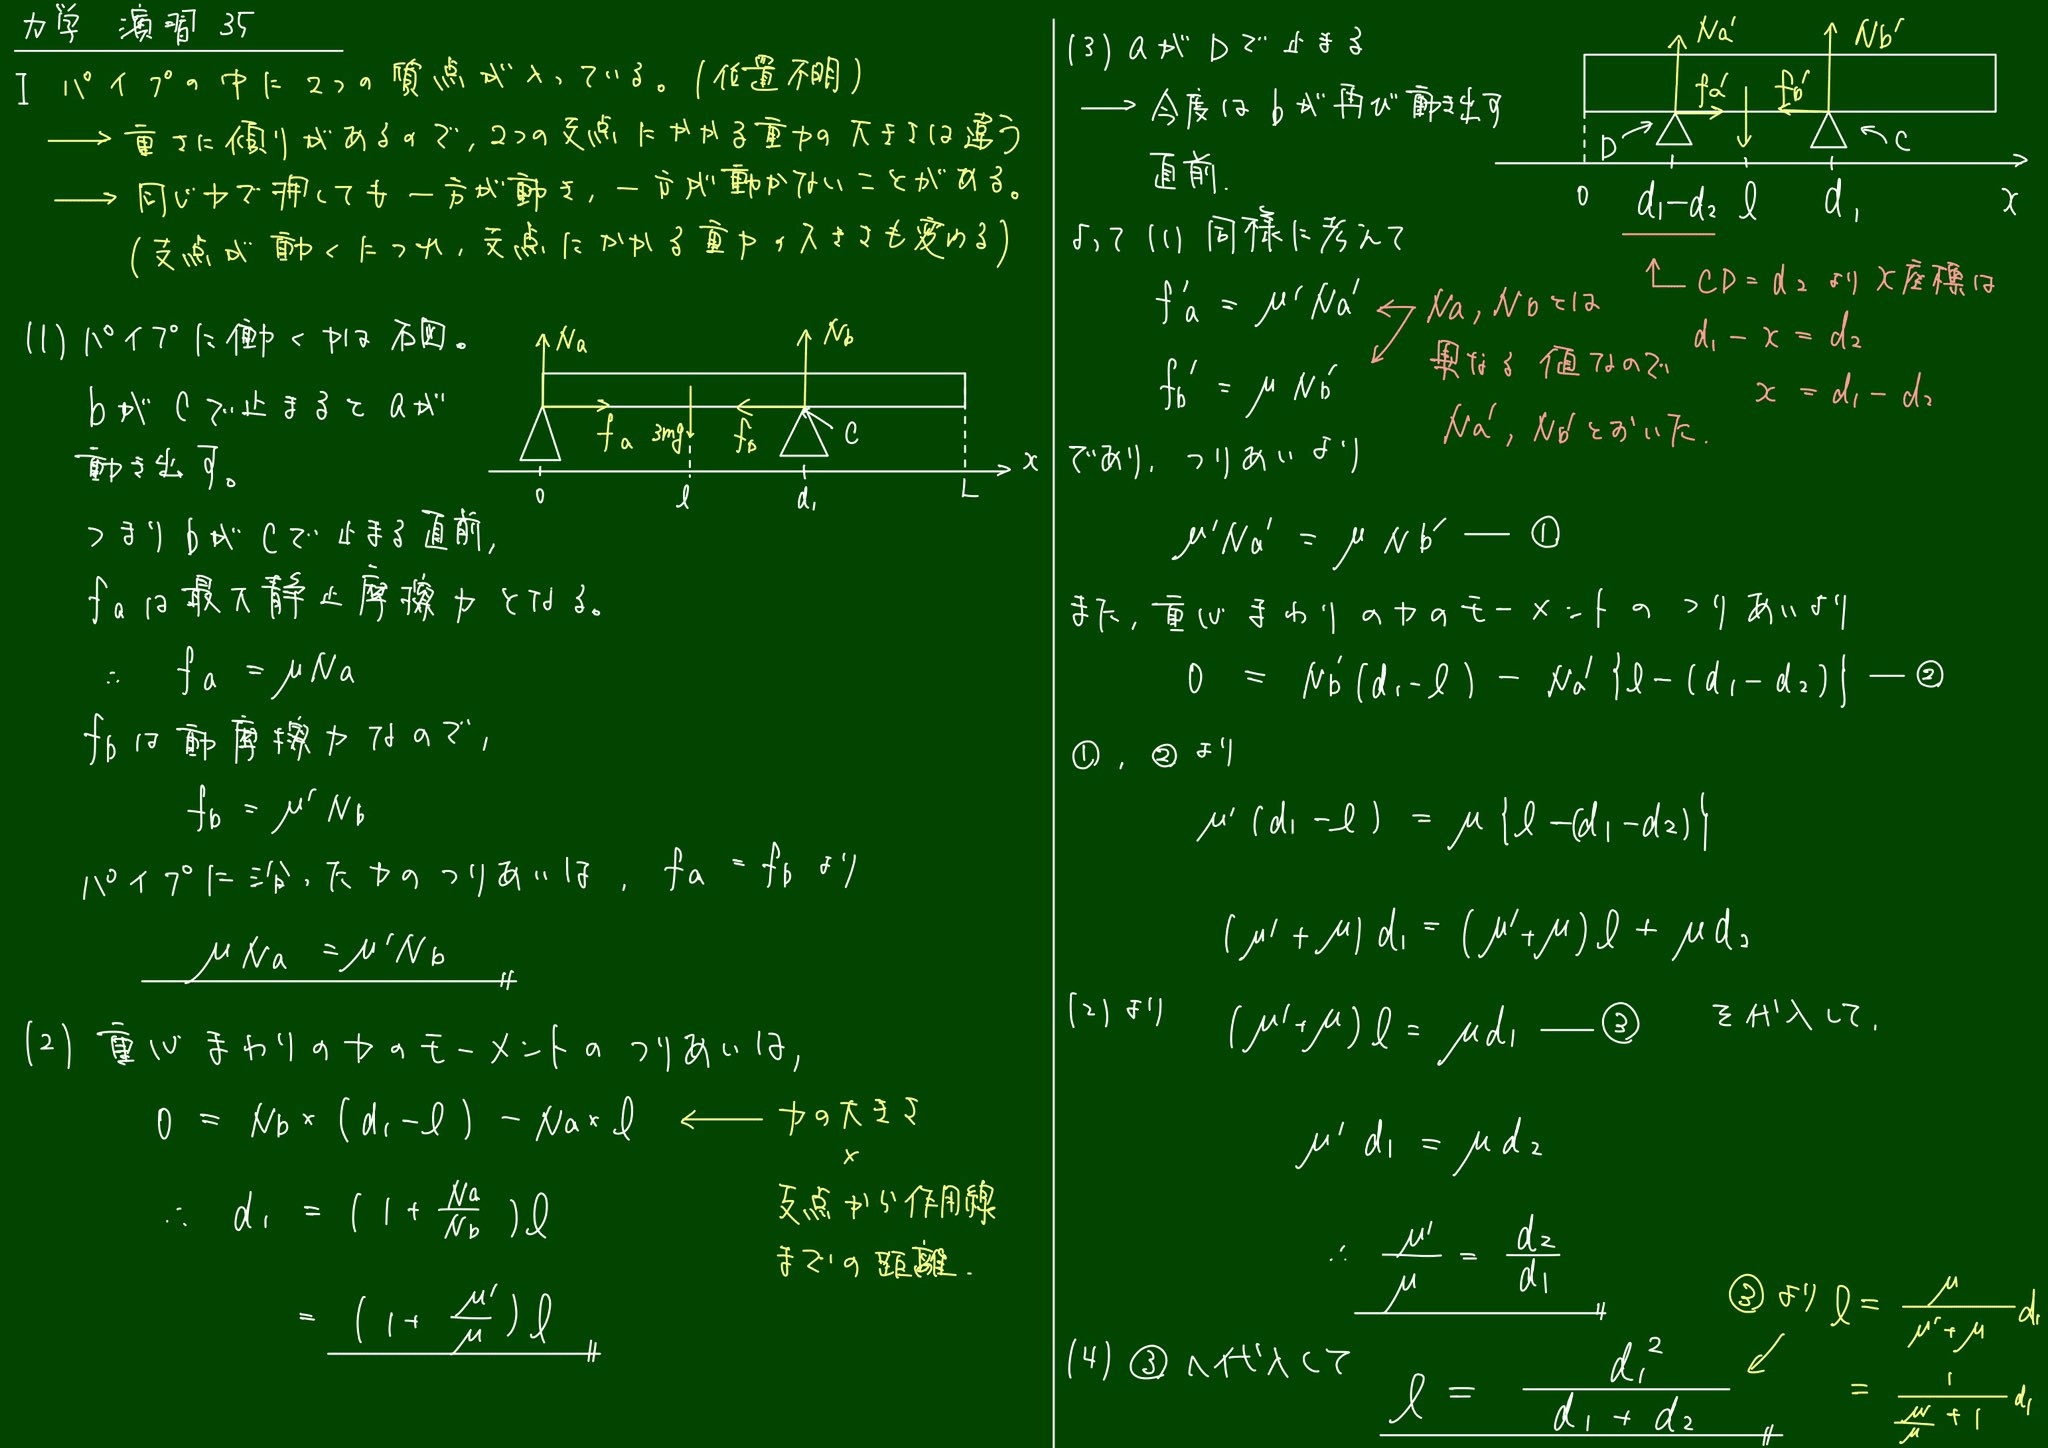 力学 演習 35
I パイプの中に2つの質点が入っている。(位置不明)
→ 重さに傾りがあるので, 2つの支点にかかる重力の大きさは違う
→ 同じ力で押しても一方が動き, 一方が動かないことがある。
(支点が動くにつれ, 支点にかかる重力の大きさも変わる)
(1) パイプに働く力は右図。
bがCで止まるとaが
動き出す。
つまりbがCで止まる直前,
faは最大静止摩擦力となる。
∴ fa = μNa
fbは動摩擦力なので,
fb = μ'Nb
パイプに沿った力のつりあいは, fa = fb より
μNa = μ'Nb
Na
Nb
fa
3mg
fb
C
0
l
d₁
L
x
(2) 重心まわりの力のモーメントのつりあいは,
0 = Nb × (d₁-l) - Na × l ← 力の大きさ
×
支点から作用線
までの距離.
∴ d₁ = (1 + Na/Nb) l
= (1 + μ'/μ) l
(3) aがDで止まる
→ 今度はbが再び動き出す
直前.
Na'
Nb'
fa'
fb'
D
C
0
d₁-d₂
l
d₁
x
↑ CD = d₂ より x座標は
d₁ - x = d₂
x = d₁ - d₂
よって (1) 同様に考えて
f'a = μ'Na'
fb' = μNb'
Na, Nbとは
異なる値なので
Na', Nb'とおいた.
であり, つりあいより
μ'Na' = μNb' — ①
また, 重心まわりの力のモーメントのつりあいより
0 = Nb'(d₁-l) - Na'{l-(d₁-d₂)} — ②
①, ② より
μ'(d₁-l) = μ{l-(d₁-d₂)}
(μ'+μ)d₁ = (μ'+μ)l + μd₂
(2) より (μ'+μ)l = μd₁ — ③ を代入して,
μ'd₁ = μd₂
∴ μ'/μ = d₂/d₁
(4) ③へ代入して
l = d₁²/(d₁+d₂)
③より l = μ/(μ'+μ) d₁
= 1/(μ'/μ + 1) d₁